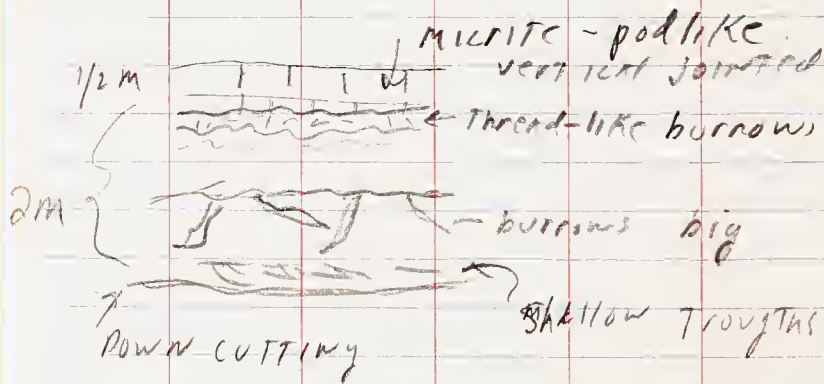 micrite - podlike
vertical jointed
1/2 M
Thread-like burrows
2M
burrows big
Shallow Troughs
Down cutting